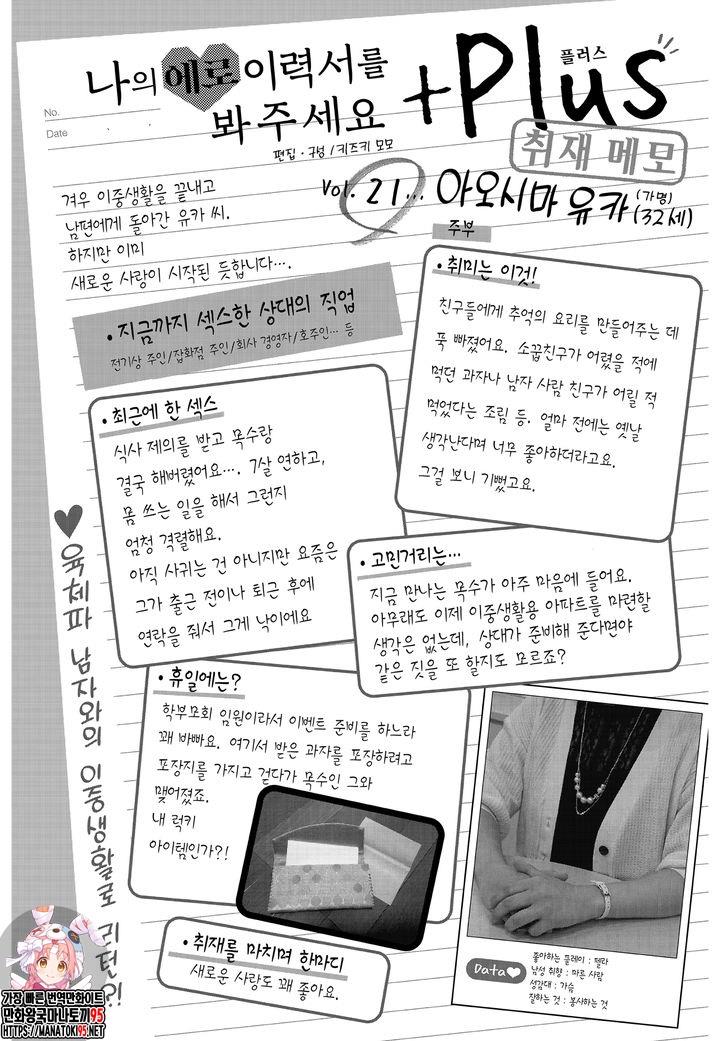 나의 에로 이력서를
봐주세요
+Plus
플러스
취재 메모
No.
Date
편집·구성/키즈키 모모
Vol. 21... 아오시마 유카 (가명)
(32세)
주부
겨우 이중생활을 끝내고
남편에게 돌아간 유카 씨.
하지만 이미
새로운 사랑이 시작된 듯합니다….
• 지금까지 섹스한 상대의 직업
전기상 주인/잡화점 주인/회사 경영자/호주인… 등
• 취미는 이것!
친구들에게 추억의 요리를 만들어주는 데
푹 빠졌어요. 소꿉친구가 어렸을 적에
먹던 과자나 남자 사람 친구가 어릴 적
먹었다는 조림 등. 얼마 전에는 옛날
생각난다며 너무 좋아하더라고요.
그걸 보니 기뻤고요.
• 최근에 한 섹스
식사 제의를 받고 목수랑
결국 해버렸어요…. 7살 연하고,
몸 쓰는 일을 해서 그런지
엄청 격렬해요.
아직 사귀는 건 아니지만 요즘은
그가 출근 전이나 퇴근 후에
연락을 줘서 그게 낙이에요
• 고민거리는…
지금 만나는 목수가 아주 마음에 들어요.
아무래도 이제 이중생활용 아파트를 마련할
생각은 없는데, 상대가 준비해 준다면야
같은 짓을 또 할지도 모르죠?
♥육체파 남자와의 이중생활로 리턴?!
• 휴일에는?
학부모회 임원이라서 이벤트 준비를 하느라
꽤 바빠요. 여기서 받은 과자를 포장하려고
포장지를 가지고 걷다가 목수인 그와
맺어졌죠.
내 럭키
아이템인가?!
• 취재를 마치며 한마디
새로운 사랑도 꽤 좋아요.
Data♥
좋아하는 플레이 : 펠라
남성 취향 : 마른 사람
성감대 : 가슴
잘하는 것 : 봉사하는 것
가장 빠른 번역만화이트
만화왕국마나토끼95
HTTPS://MANATOKI95.NET